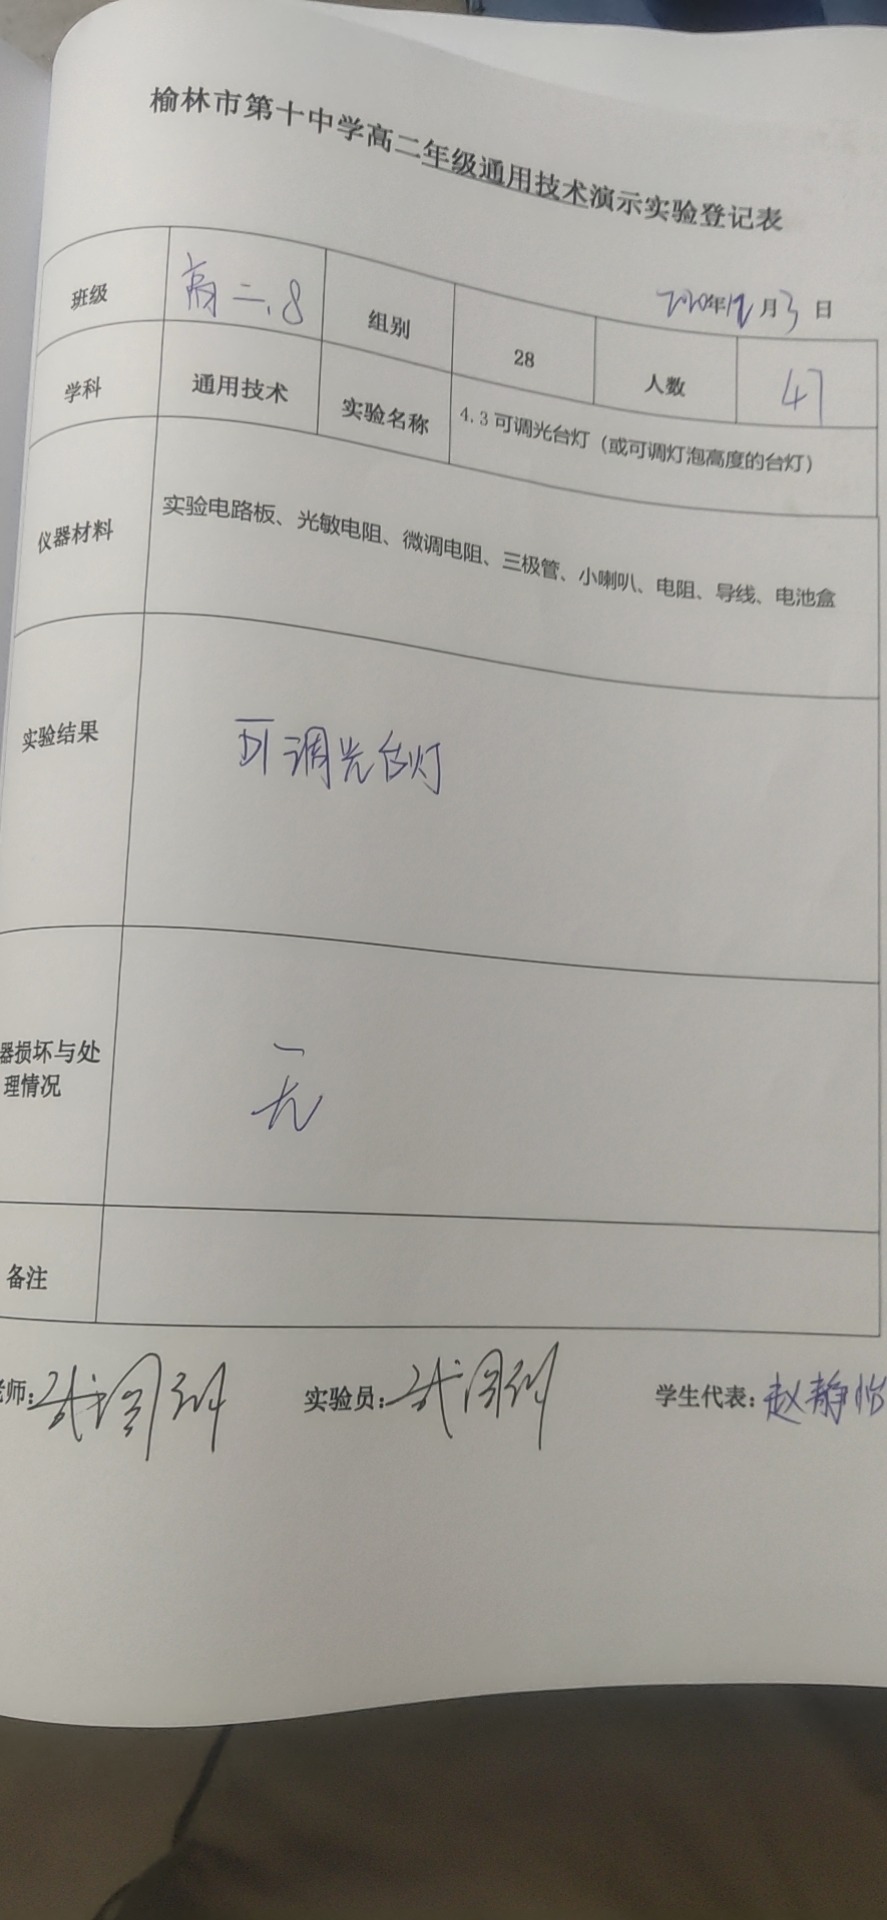 榆林市第十中学高二年级通用技术演示实验登记表
2020年12月3日
班级 高二.8 组别 28 人数 47
学科 通用技术 实验名称 4.3可调光台灯（或可调灯泡高度的台灯）
仪器材料 实验电路板、光敏电阻、微调电阻、三极管、小喇叭、电阻、导线、电池盒
实验结果 可调光台灯
器损坏与处
理情况 无
备注
师： 实验员： 学生代表：赵静怡